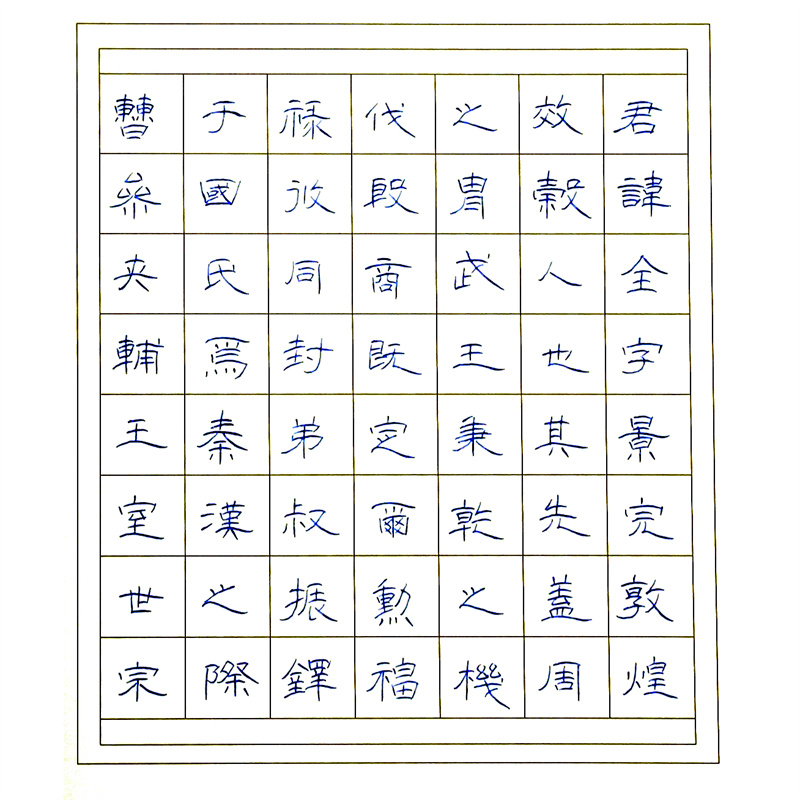 君諱全字景完敦煌
效穀人也其先蓋周
之胄武王秉乾之機
伐殷商既定爾勳福
禄攸同封弟叔振鐸
于國氏焉秦漢之際
曹參夾輔王室世宗